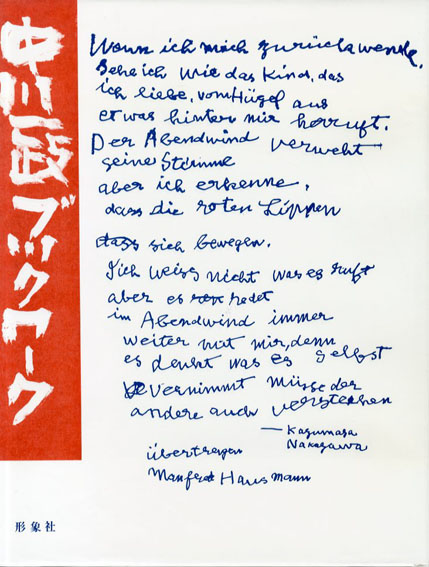 中川一政ブックワーク
Wenn ich mich zurückwende,
Sehe ich wie das Kind, das
ich liebe, vom Hügel aus
etwas hinter mir herruft.
Der Abendwind verweht
seine Stimme
aber ich erkenne,
dass die roten Lippen
sich bewegen.
Ich weiss nicht was es ruft
aber es redet
im Abendwind immer
weiter mit mir, denn
es denkt was es selbst
vernimmt müsse der
andere auch verstehen
— Kazumasa
Nakagawa
übertragen
Manfred Hausmann
形象社